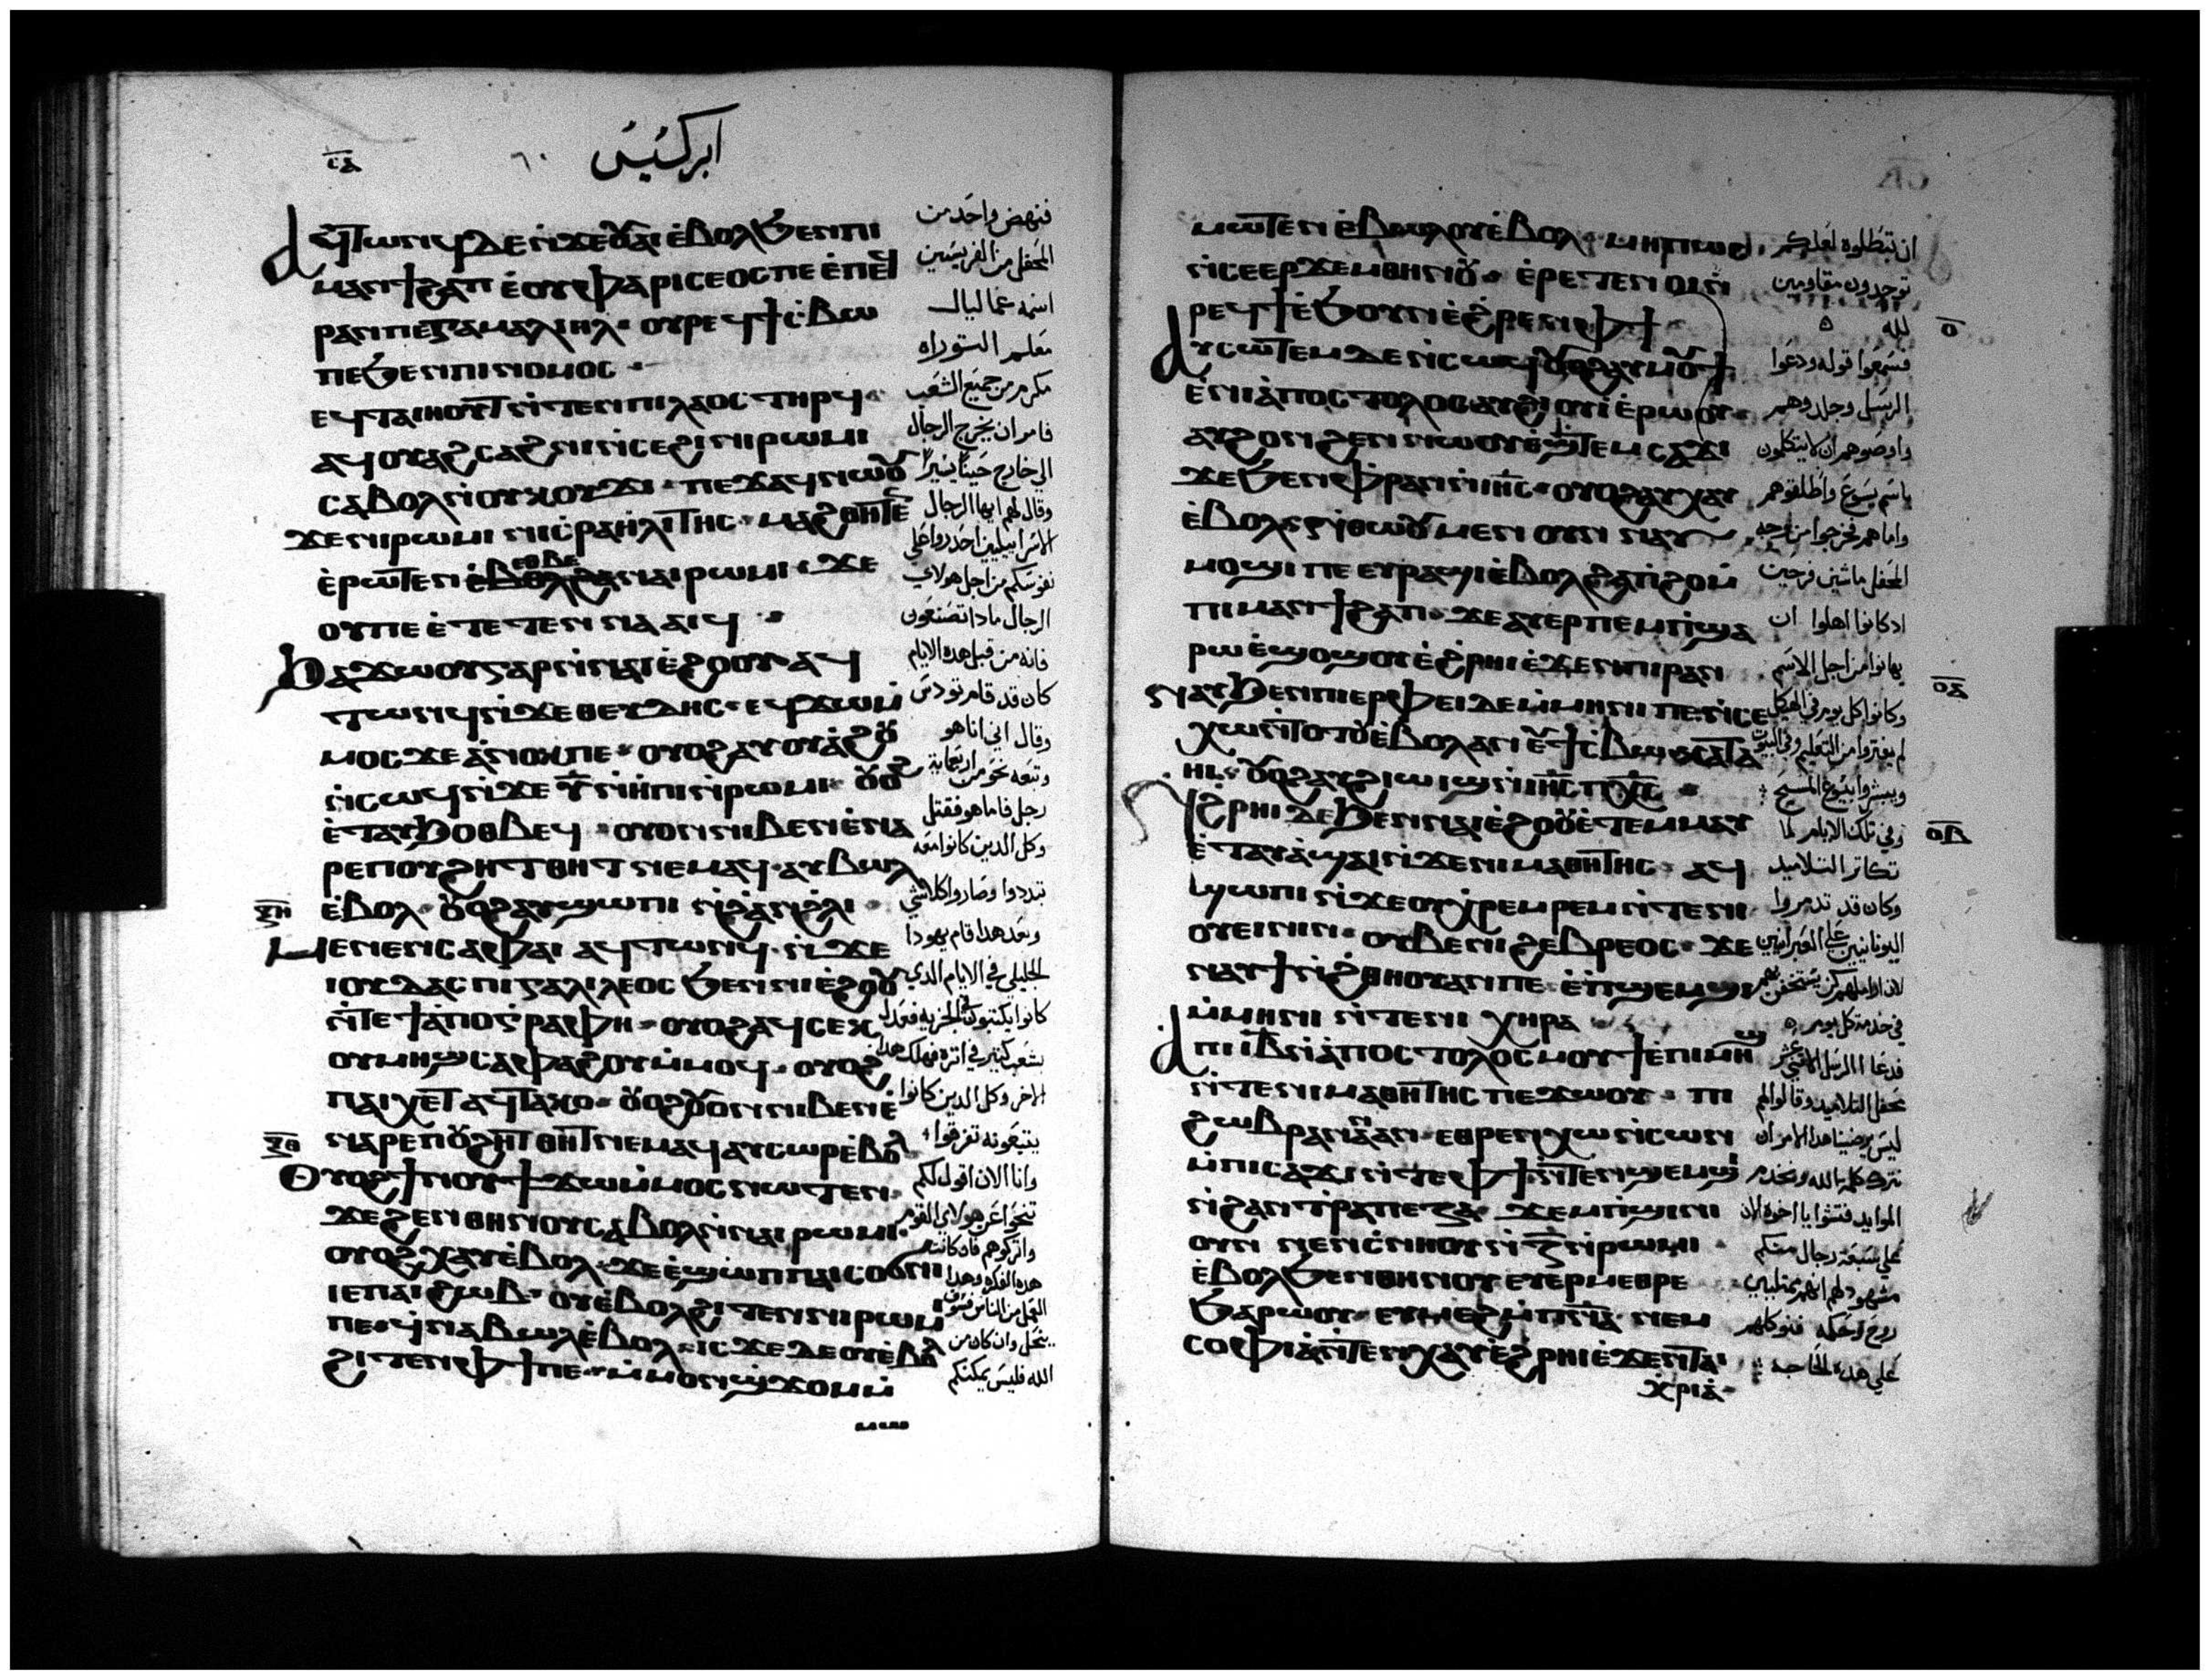 ⲝⲁ
٦٠
ابركسيس
ⲁϥⲧⲱⲛϥ ⲇⲉ ⲛϫⲉⲟⲩⲁⲓ ⲉⲃⲟⲗϧⲉⲛⲡⲓ
ⲙⲁⲛϯϩⲁⲡ ⲉⲟⲩⲫⲁⲣⲓⲥⲉⲟⲥ ⲡⲉ ⲉⲡⲉϥ
ⲣⲁⲛ ⲡⲉ ⲅⲁⲙⲁⲗⲓⲏⲗ ⲟⲩⲣⲉϥϯⲥⲃⲱ
ⲡⲉ ϧⲉⲛⲡⲓⲛⲟⲙⲟⲥ
ⲉϥⲧⲁⲓⲏⲟⲩⲧ ⲛⲧⲉⲛⲡⲓⲗⲁⲟⲥ ⲧⲏⲣϥ
ⲁϥⲟⲩⲁϩⲥⲁϩⲛⲓ ⲛⲥⲉϩⲓ ⲛⲓⲣⲱⲙⲓ
ⲥⲁⲃⲟⲗ ⲛⲟⲩⲕⲟⲩϫⲓ ⲡⲉϫⲁϥ ⲛⲱⲟⲩ
ϫⲉ ⲛⲓⲣⲱⲙⲓ ⲛⲓⲥⲣⲁⲏⲗⲓⲧⲏⲥ ⲙⲁϩⲑⲏⲧⲉⲛ
ⲉⲣⲱⲧⲉⲛ ⲉⲑⲃⲉ ⲛⲁⲓⲣⲱⲙⲓ ϫⲉ
ⲟⲩ ⲡⲉ ⲉⲧⲉⲧⲉⲛⲛⲁⲁⲓϥ
ϧⲁϫⲱⲟⲩ ⲅⲁⲣ ⲛⲛⲁⲓⲉϩⲟⲟⲩ ⲁϥ
ⲧⲱⲛϥ ⲛϫⲉⲑⲉⲩⲇⲏⲥ ⲉϥϫⲱⲙ
ⲙⲟⲥ ϫⲉ ⲁⲛⲟⲕ ⲡⲉ ⲟⲩⲟϩ ⲁⲩⲟⲩⲁϩⲟⲩ
ⲛⲥⲱϥ ⲛϫⲉ ⲩ ⲛⲏⲡⲓ ⲛⲣⲱⲙⲓ ⲟⲩⲟϩ
ⲉⲧⲁⲩϧⲟⲑⲃⲉϥ ⲟⲩⲟⲛ ⲛⲓⲃⲉⲛ ⲉⲛⲁ
ⲣⲉ ⲡⲟⲩϩⲏⲧ ⲑⲏⲧ ⲛⲉⲙⲁϥ ⲁⲩⲃⲱⲗ
ⲉⲃⲟⲗ ⲟⲩⲟϩ ⲁⲩϣⲱⲡⲓ ⲛϩⲁⲛϩⲗⲓ
ⲝⲏ
ⲙⲉⲛⲉⲛⲥⲁ ⲫⲁⲓ ⲁϥⲧⲱⲛϥ ⲛϫⲉ
ⲓⲟⲩⲇⲁⲥ ⲡⲓⲅⲁⲗⲓⲗⲉⲟⲥ ϧⲉⲛ ⲛⲓⲉϩⲟⲟⲩ
ⲛⲧⲉ ϯⲁⲡⲟⲅⲣⲁⲫⲏ ⲟⲩⲟϩ ⲁϥⲥⲉⲕ
ⲟⲩⲙⲏϣ ⲥⲁⲫⲁϩⲟⲩ ⲙⲙⲟϥ ⲟⲩⲟϩ
ⲡⲁⲓⲭⲉⲧ ⲁϥⲧⲁⲕⲟ ⲟⲩⲟϩ ⲟⲩⲟⲛ ⲛⲓⲃⲉⲛ ⲉ
ⲛⲁⲣⲉ ⲡⲟⲩϩⲏⲧ ⲑⲏⲧ ⲛⲉⲙⲁϥ ⲁⲩⲥⲱⲣ ⲉⲃⲟⲗ
ⲝⲑ
ⲟⲩⲟϩ ϯⲛⲟⲩ ϯϫⲱ ⲙⲙⲟⲥ ⲛⲱⲧⲉⲛ
ϫⲉ ϩⲉⲛⲑⲏⲛⲟⲩ ⲥⲁⲃⲟⲗ ⲛⲛⲁⲓⲣⲱⲙⲓ
ⲟⲩⲟϩ ⲭⲁⲩ ⲉⲃⲟⲗ ϫⲉ ⲉϣⲱⲡ ⲡⲁⲓⲥⲟϭⲛⲓ
ⲓⲉ ⲡⲁⲓϩⲱⲃ ⲟⲩⲉⲃⲟⲗϩⲓⲧⲉⲛ ⲛⲓⲣⲱⲙⲓ
ⲡⲉ ϥⲛⲁⲃⲱⲗ ⲉⲃⲟⲗ ⲓⲥϫⲉ ⲇⲉ ⲟⲩⲉⲃⲟⲗ
ϩⲓⲧⲉⲛ ⲫϯ ⲡⲉ ⲙⲙⲟⲛ ϣϫⲟⲙ ⲙ
فنهض واحد من
المحفل من الفريسين
اسمه غمالیال
معلم التوراه
مكرم من جميع الشعب
فامر ان يخرج الرجال
الي خارج حينا يسيرا
وقال لهم ايها الرجال
الاسراييليين احدروا علي
نفوسكم من اجل هولاي
الرجال مادا تصنعون
فانه من قبل هده الايام
كان قد قام تودس
وقال اني انا هو
وتبعه نحو من اربعمايه
رجل فاما هو فقتل
وكل الدين كانوا معه
تبددوا وصاروا كلا شي
وبعد هدا قام يهودا
الجليلي في الايام الدي
كانوا يكتبوا الجزيه فعدل
بشعب كتير في اتره فهلك هدا
الاخر وكل الدين كانوا
يتبعونه تفرقوا
وانا الان اقول لكم
تنحوا عن هولاي القوم
واتركوهم فان كانت
هده الفكره وهدا
العمل من الناس فسوف
ينحل وان كان من
الله فليس يمكنكم
ⲙⲱⲧⲉⲛ ⲉⲃⲱⲗⲟⲩ ⲉⲃⲟⲗ ⲙⲏⲡⲱⲥ
ⲛⲥⲉⲉⲣϫⲉⲙⲑⲏⲛⲟⲩ ⲉⲣⲉⲧⲉⲛⲟⲓ ⲛ
ⲣⲉϥϯ ⲉϧⲟⲩⲛ ⲉϩⲣⲉⲛ ⲫϯ
ⲟ
ⲁⲩⲥⲱⲧⲉⲙ ⲇⲉ ⲛⲥⲱϥ ⲟⲩⲟϩ ⲁⲩⲙⲟⲩϯ
ⲉⲛⲓⲁⲡⲟⲥⲧⲟⲗⲟⲥ ⲁⲩϩⲓⲟⲩⲓ ⲉⲣⲱⲟⲩ
ⲁⲩϩⲟⲛϩⲉⲛ ⲛⲱⲟⲩ ⲉϣⲧⲉⲙⲥⲁϫⲓ
ϫⲉ ϧⲉⲛ ⲫⲣⲁⲛ ⲛⲓⲏⲥ ⲟⲩⲟϩ ⲁⲩⲭⲁⲩ
ⲉⲃⲟⲗ ⲛⲑⲱⲟⲩ ⲙⲉⲛ ⲟⲩⲛ ⲛⲁⲩ
ⲙⲟϣⲓ ⲡⲉ ⲉⲩⲣⲁϣⲓ ⲉⲃⲟⲗϩⲁ ⲡϩⲟ ⲙ
ⲡⲓⲙⲁⲛϯϩⲁⲡ ϫⲉ ⲁⲩⲉⲣⲡⲉⲙⲡϣⲁ
ⲣⲱ ⲉϣⲟϣⲟⲩ ⲉϩⲣⲏⲓ ⲉϫⲉⲛ ⲡⲓⲣⲁⲛ
ⲟⲁ
ⲛⲁⲩϧⲉⲛ ⲡⲓⲉⲣⲫⲉⲓ ⲇⲉ ⲙⲙⲏⲛⲓ ⲡⲉ ⲛⲥⲉ
ⲭⲱ ⲛⲧⲟⲧⲟⲩ ⲉⲃⲟⲗ ⲁⲛ ⲉⲩϯⲥⲃⲱ ⲕⲁⲧⲁ
ⲏⲓ ⲟⲩⲟϩ ⲁⲩϩⲓⲱⲓϣ ⲛⲓⲏⲥ ⲡⲭⲥ
ⲟⲃ
ⲛϩⲣⲏⲓ ⲇⲉ ϧⲉⲛ ⲛⲁⲓⲉϩⲟⲟⲩ ⲉⲧⲉⲙⲙⲁⲩ
ⲉⲧⲁⲩⲁϣⲁⲓ ⲛϫⲉ ⲛⲓⲙⲁⲑⲏⲧⲏⲥ ⲁϥ
ϣⲱⲡⲓ ⲛϫⲉ ⲟⲩⲭⲣⲉⲙⲣⲉⲙ ⲛⲧⲉ ⲛⲓ
ⲟⲩⲉⲓⲛⲓⲛ ⲟⲩⲃⲉ ⲛⲓϩⲉⲃⲣⲉⲟⲥ ϫⲉ
ⲛⲁⲩϯ ⲛϩⲑⲏⲟⲩ ⲁⲛ ⲡⲉ ⲉⲡϣⲉⲙϣⲓ
ⲙⲙⲏⲛⲓ ⲛⲧⲉ ⲛⲓⲭⲏⲣⲁ
ⲁ ⲡⲓⲓⲃ ⲛⲁⲡⲟⲥⲧⲟⲗⲟⲥ ⲙⲟⲩϯ ⲉⲡⲓⲙⲏϣ
ⲛⲧⲉ ⲛⲓⲙⲁⲑⲏⲧⲏⲥ ⲡⲉϫⲱⲟⲩ ⲡⲓ
ϩⲱⲃ ⲣⲁⲛⲁⲛ ⲁⲛ ⲉⲑⲣⲉⲛⲭⲱ ⲛⲥⲱⲛ
ⲙⲡⲓⲥⲁϫⲓ ⲛⲧⲉ ⲫϯ ⲛⲧⲉⲛϣⲉⲙϣⲓ
ⲛϩⲁⲛⲧⲣⲁⲡⲉⲍⲁ ϫⲉⲙⲡϣⲓⲛⲓ
ⲟⲩⲛ ⲛⲉⲛⲥⲛⲏⲟⲩ ⲛⲍ ⲛⲣⲱⲙⲓ
ⲉⲃⲟⲗϧⲉⲛ ⲑⲏⲛⲟⲩ ⲉⲩⲉⲣⲙⲉⲑⲣⲉ
ϧⲁⲣⲱⲟⲩ ⲉⲩⲙⲉϩ ⲙⲡⲛⲁ ⲛⲉⲙ
ⲥⲟⲫⲓⲁ ⲛⲧⲉⲛⲭⲁⲩ ⲉϩⲣⲏⲓ ⲉϫⲉⲛ ⲧⲁⲓ
ⲭⲣⲓⲁ
ان تبطلوه لعلكم
توجدون مقاومين
لله
فسمعوا قوله ودعوا
الرسل وجلدوهم
واوصوهم ان لا يتكلمون
باسم يسوع واطلقوهم
واما هم فخرجوا من وجه
المحفل ماشين فرحين
اد كانوا اهلوا ان
يهانوا من اجل الاسم
وكانوا كل يوم في الهيكل
لم يفتروا من التعليم وفي البيوت
ويبشروا بيسوع المسيح
وفي تلك الايام لما
تكاتر التلاميد
وكان قد تدمروا
اليونانيين علي العبرانيين
لان اراملهم كن يستخفن بهم
في خدمة كل يوم
فدعا الرسل الاتني عشر
محفل التلاميد وقالوا لهم
ليس يرضينا هدا الامر ان
نترك كلمة الله ونخدم
الموايد فتشوا يا اخوه الان
علي سبعة رجال منكم
مشهود لهم انهم ممتليين
روح وحكمه فنوكلهم
علي هده الحاجه